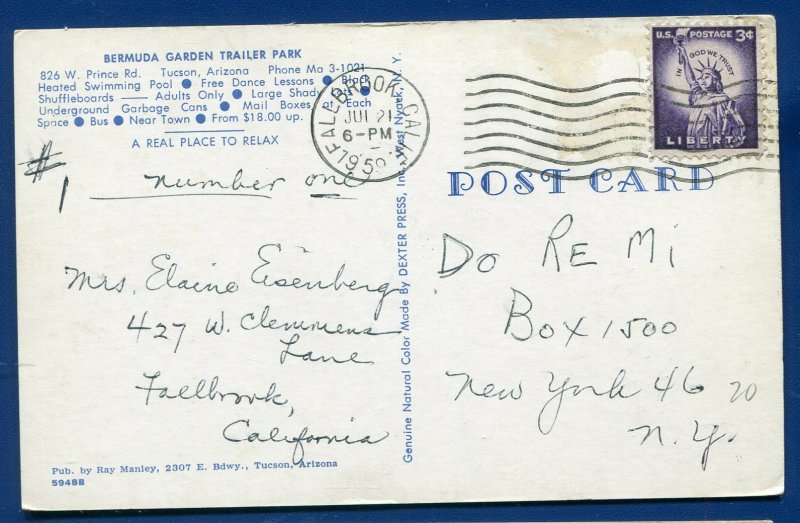 BERMUDA GARDEN TRAILER PARK
826 W. Prince Rd. Tucson, Arizona Phone Ma 3-1021
Heated Swimming Pool ● Free Dance Lessons ● Black
Shuffleboards — Adults Only ● Large Shady
Underground Garbage Cans ● Mail Boxes at Each
Space ● Bus ● Near Town ● From $18.00 up.
A REAL PLACE TO RELAX
#1 number one
Mrs. Elaine Eisenberg
427 W. Clemmens
Lane
Fallbrook,
California
Pub. by Ray Manley, 2307 E. Bdwy., Tucson, Arizona
5948B
Genuine Natural Color Made By DEXTER PRESS, Inc., West Nyack, N. Y.
FALLBROOK, CALIF.
JUL 21
6-PM
1959
U.S. POSTAGE 3¢
IN GOD WE TRUST
LIBERTY
POST CARD
DO RE Mi
Box 1500
New York 46 20
N.Y.